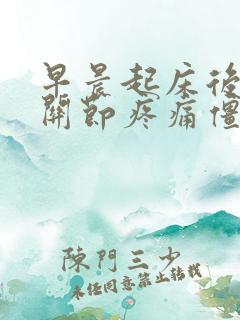 早晨起床後
關節疼痛僵
陳門三少
未經同意禁止轉載